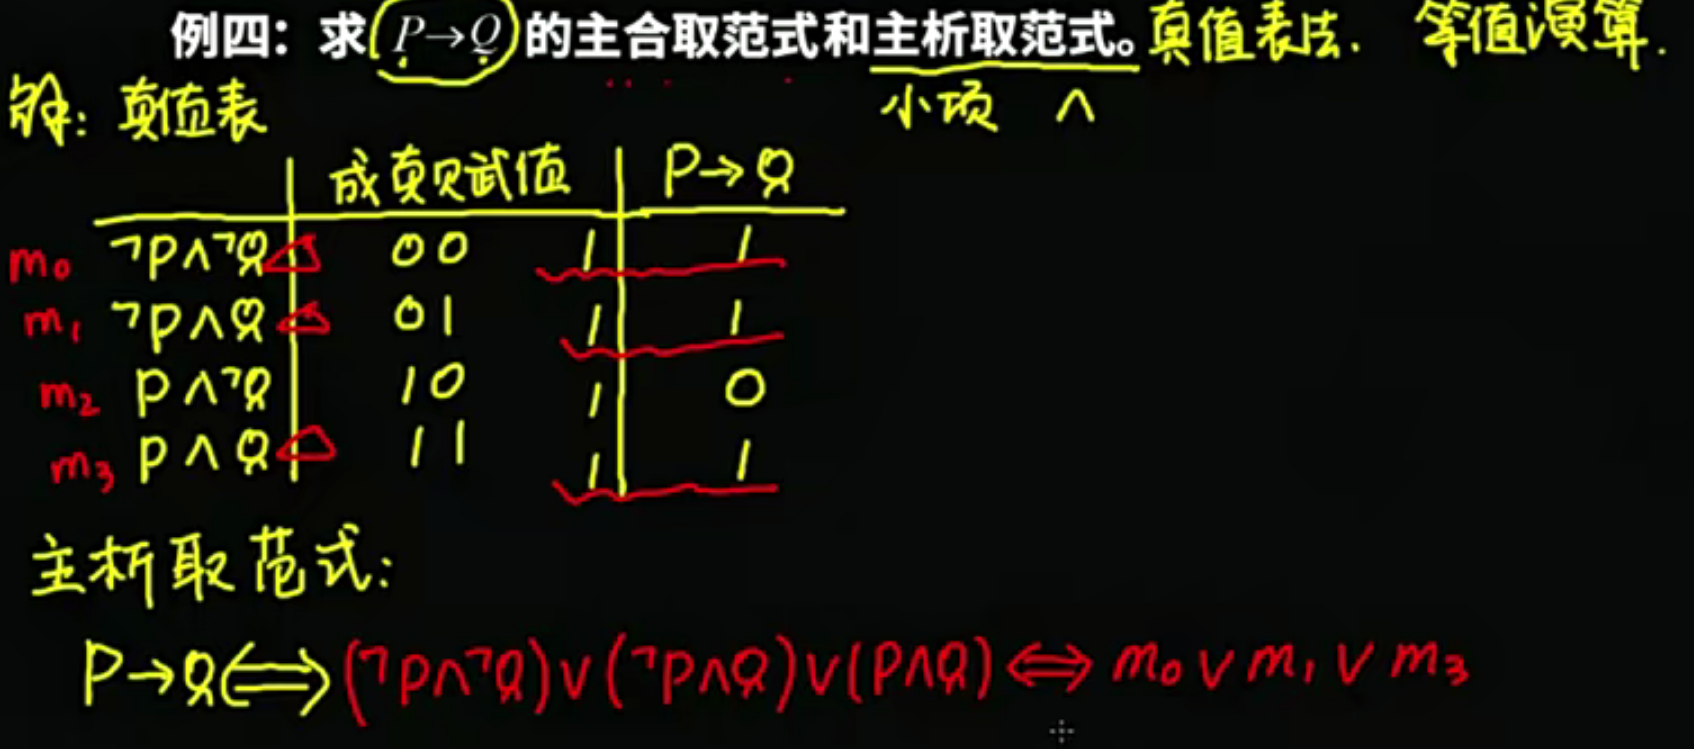 例四：求 P→Q 的主合取范式和主析取范式。真值表法. 等值演算.
解: 真值表 小项 ∧
成真赋值 P→Q
m₀ ¬P∧¬Q 00 1 1
m₁ ¬P∧Q 01 1 1
m₂ P∧¬Q 10 1 0
m₃ P∧Q 11 1 1
主析取范式:
P→Q⟺(¬P∧¬Q)∨(¬P∧Q)∨(P∧Q)⟺m₀∨m₁∨m₃